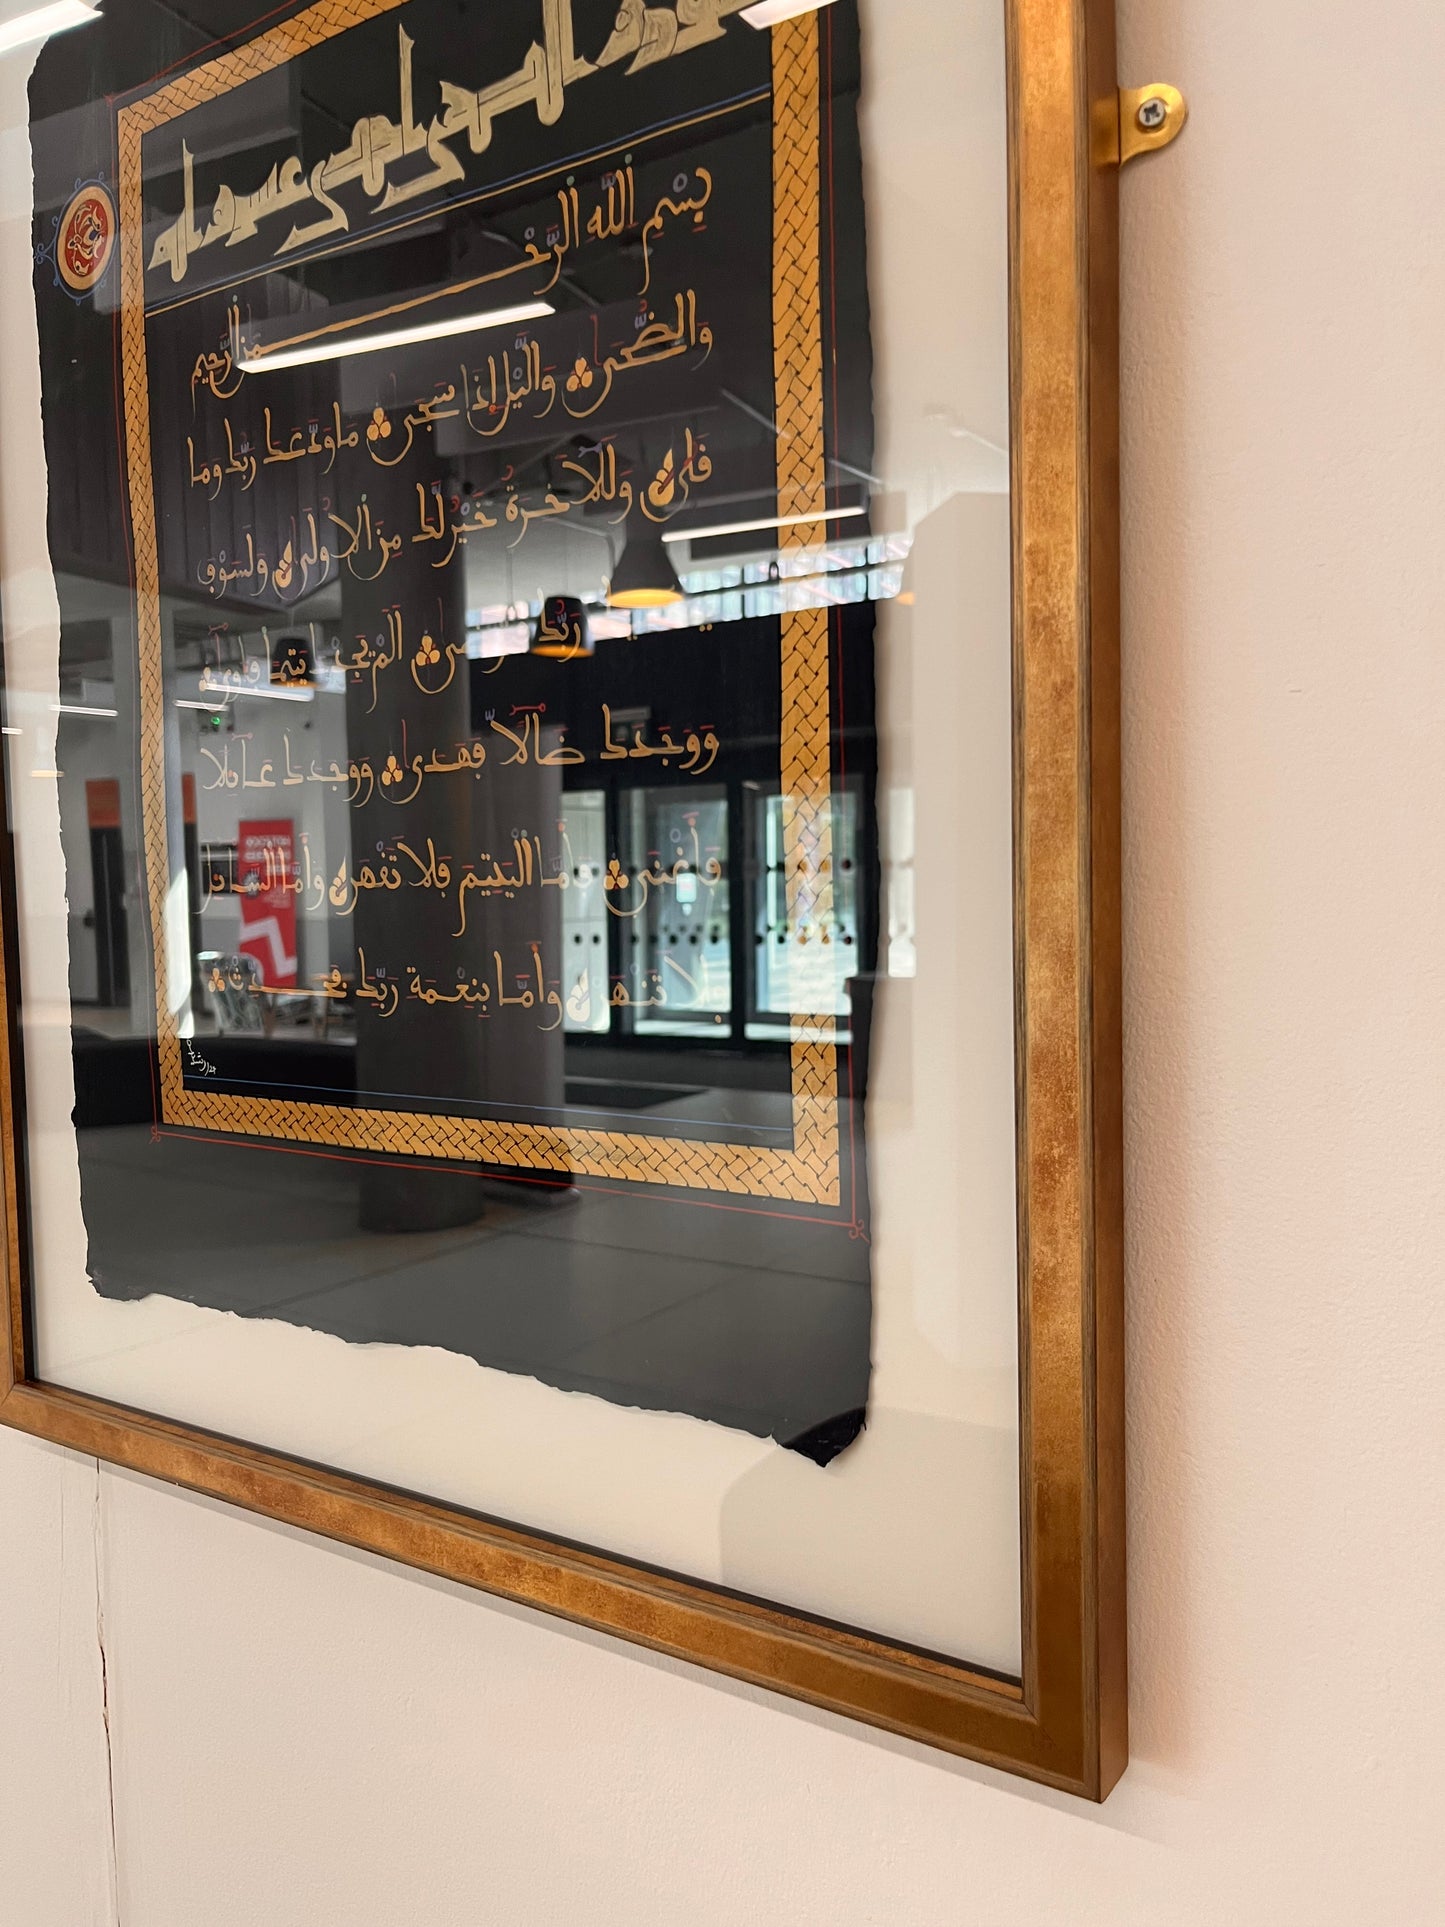 سورة الضحى إحدى عشرة آية
بِسْمِ اللَّهِ الرَّحْمَٰنِ الرَّحِيمِ
وَالضُّحَىٰ وَاللَّيْلِ إِذَا سَجَىٰ مَا وَدَّعَكَ رَبُّكَ وَمَا
قَلَىٰ وَلَلْآخِرَةُ خَيْرٌ لَّكَ مِنَ الْأُولَىٰ وَلَسَوْفَ
رَبُّكَ أَلَمْ يَجِدْكَ يَتِيمًا فَآوَىٰ
وَوَجَدَكَ ضَالًّا فَهَدَىٰ وَوَجَدَكَ عَائِلًا
فَأَغْنَىٰ فَأَمَّا الْيَتِيمَ فَلَا تَقْهَرْ وَأَمَّا السَّائِلَ
فَلَا تَنْهَرْ وَأَمَّا بِنِعْمَةِ رَبِّكَ فَحَدِّثْ